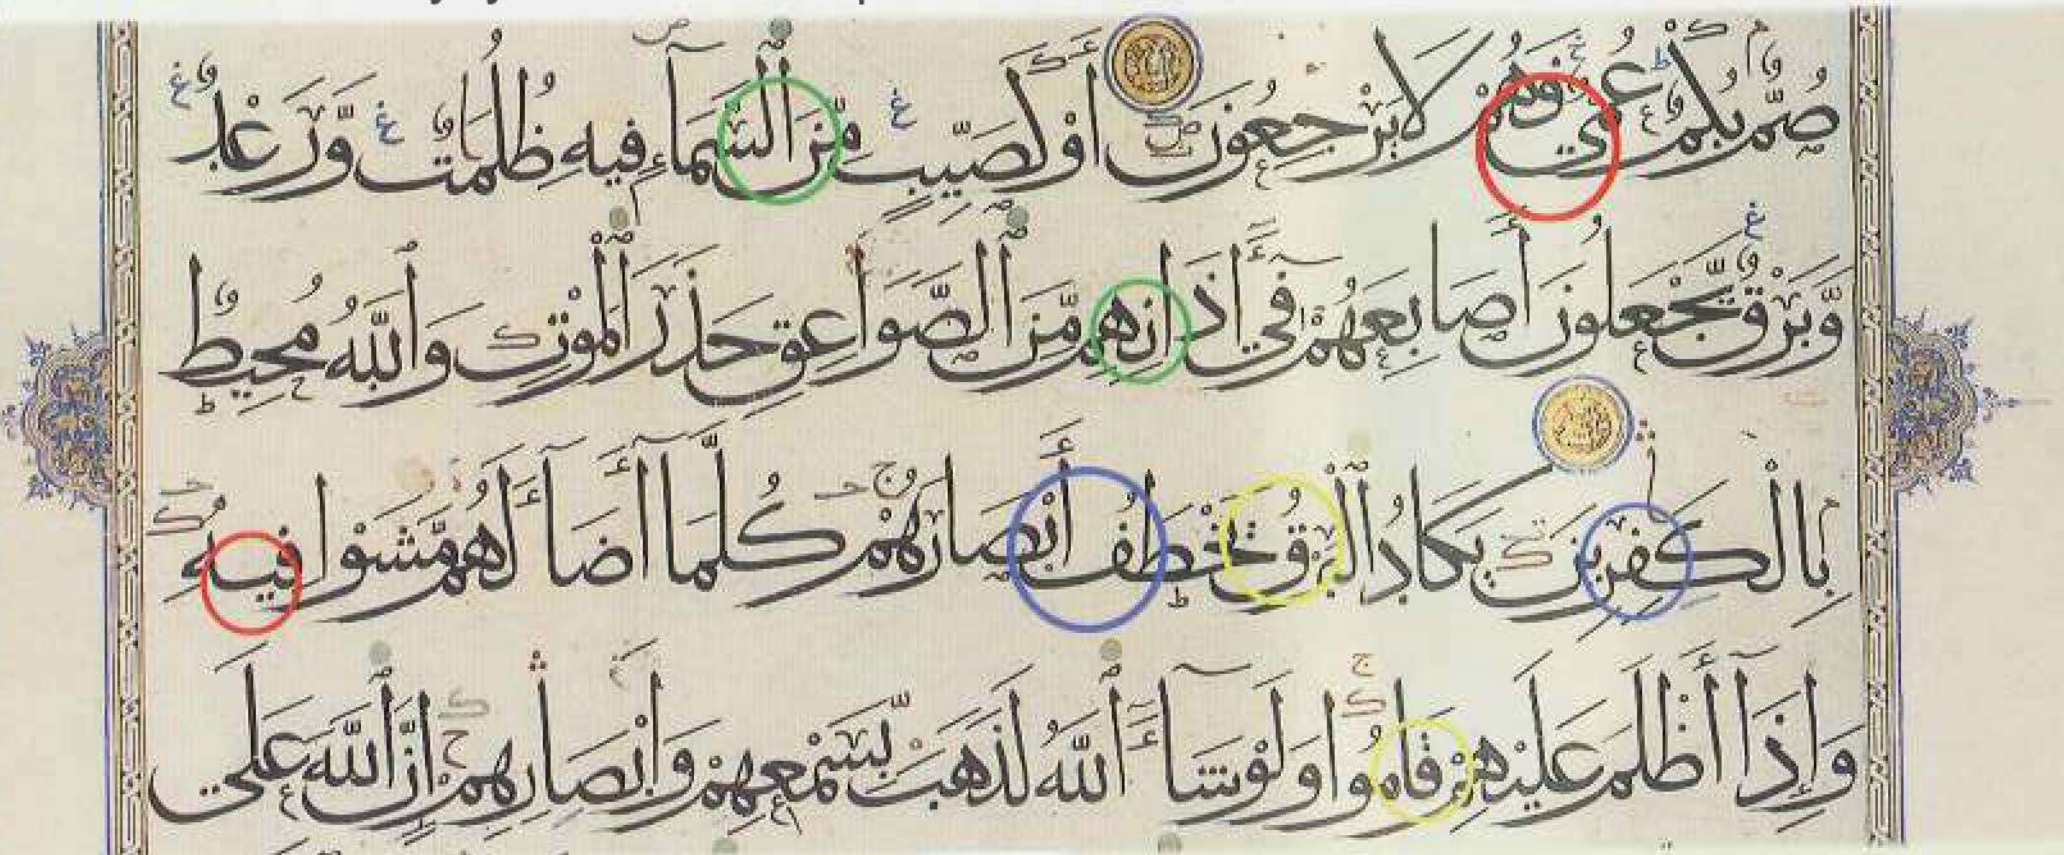 صُمٌّ بُكْمٌ عُمْيٌ فَهُمْ لَا يَرْجِعُونَ أَوْ كَصَيِّبٍ مِّنَ ٱلسَّمَآءِ فِيهِ ظُلُمَٰتٌ وَّرَعْدٌ
وَّبَرْقٌ يَّجْعَلُونَ أَصَابِعَهُمْ فِىٓ ءَاذَانِهِم مِّنَ ٱلصَّوَاعِقِ حَذَرَ ٱلْمَوْتِ وَٱللَّهُ مُحِيطٌ
بِالْكَٰفِرِينَ يَكَادُ ٱلْبَرْقُ يَخْطَفُ أَبْصَارَهُمْ كُلَّمَآ أَضَآءَ لَهُم مَّشَوْا فِيهِ
وَإِذَآ أَظْلَمَ عَلَيْهِمْ قَامُوا وَلَوْ شَآءَ ٱللَّهُ لَذَهَبَ بِسَمْعِهِمْ وَأَبْصَارِهِمْ إِنَّ ٱللَّهَ عَلَىٰ